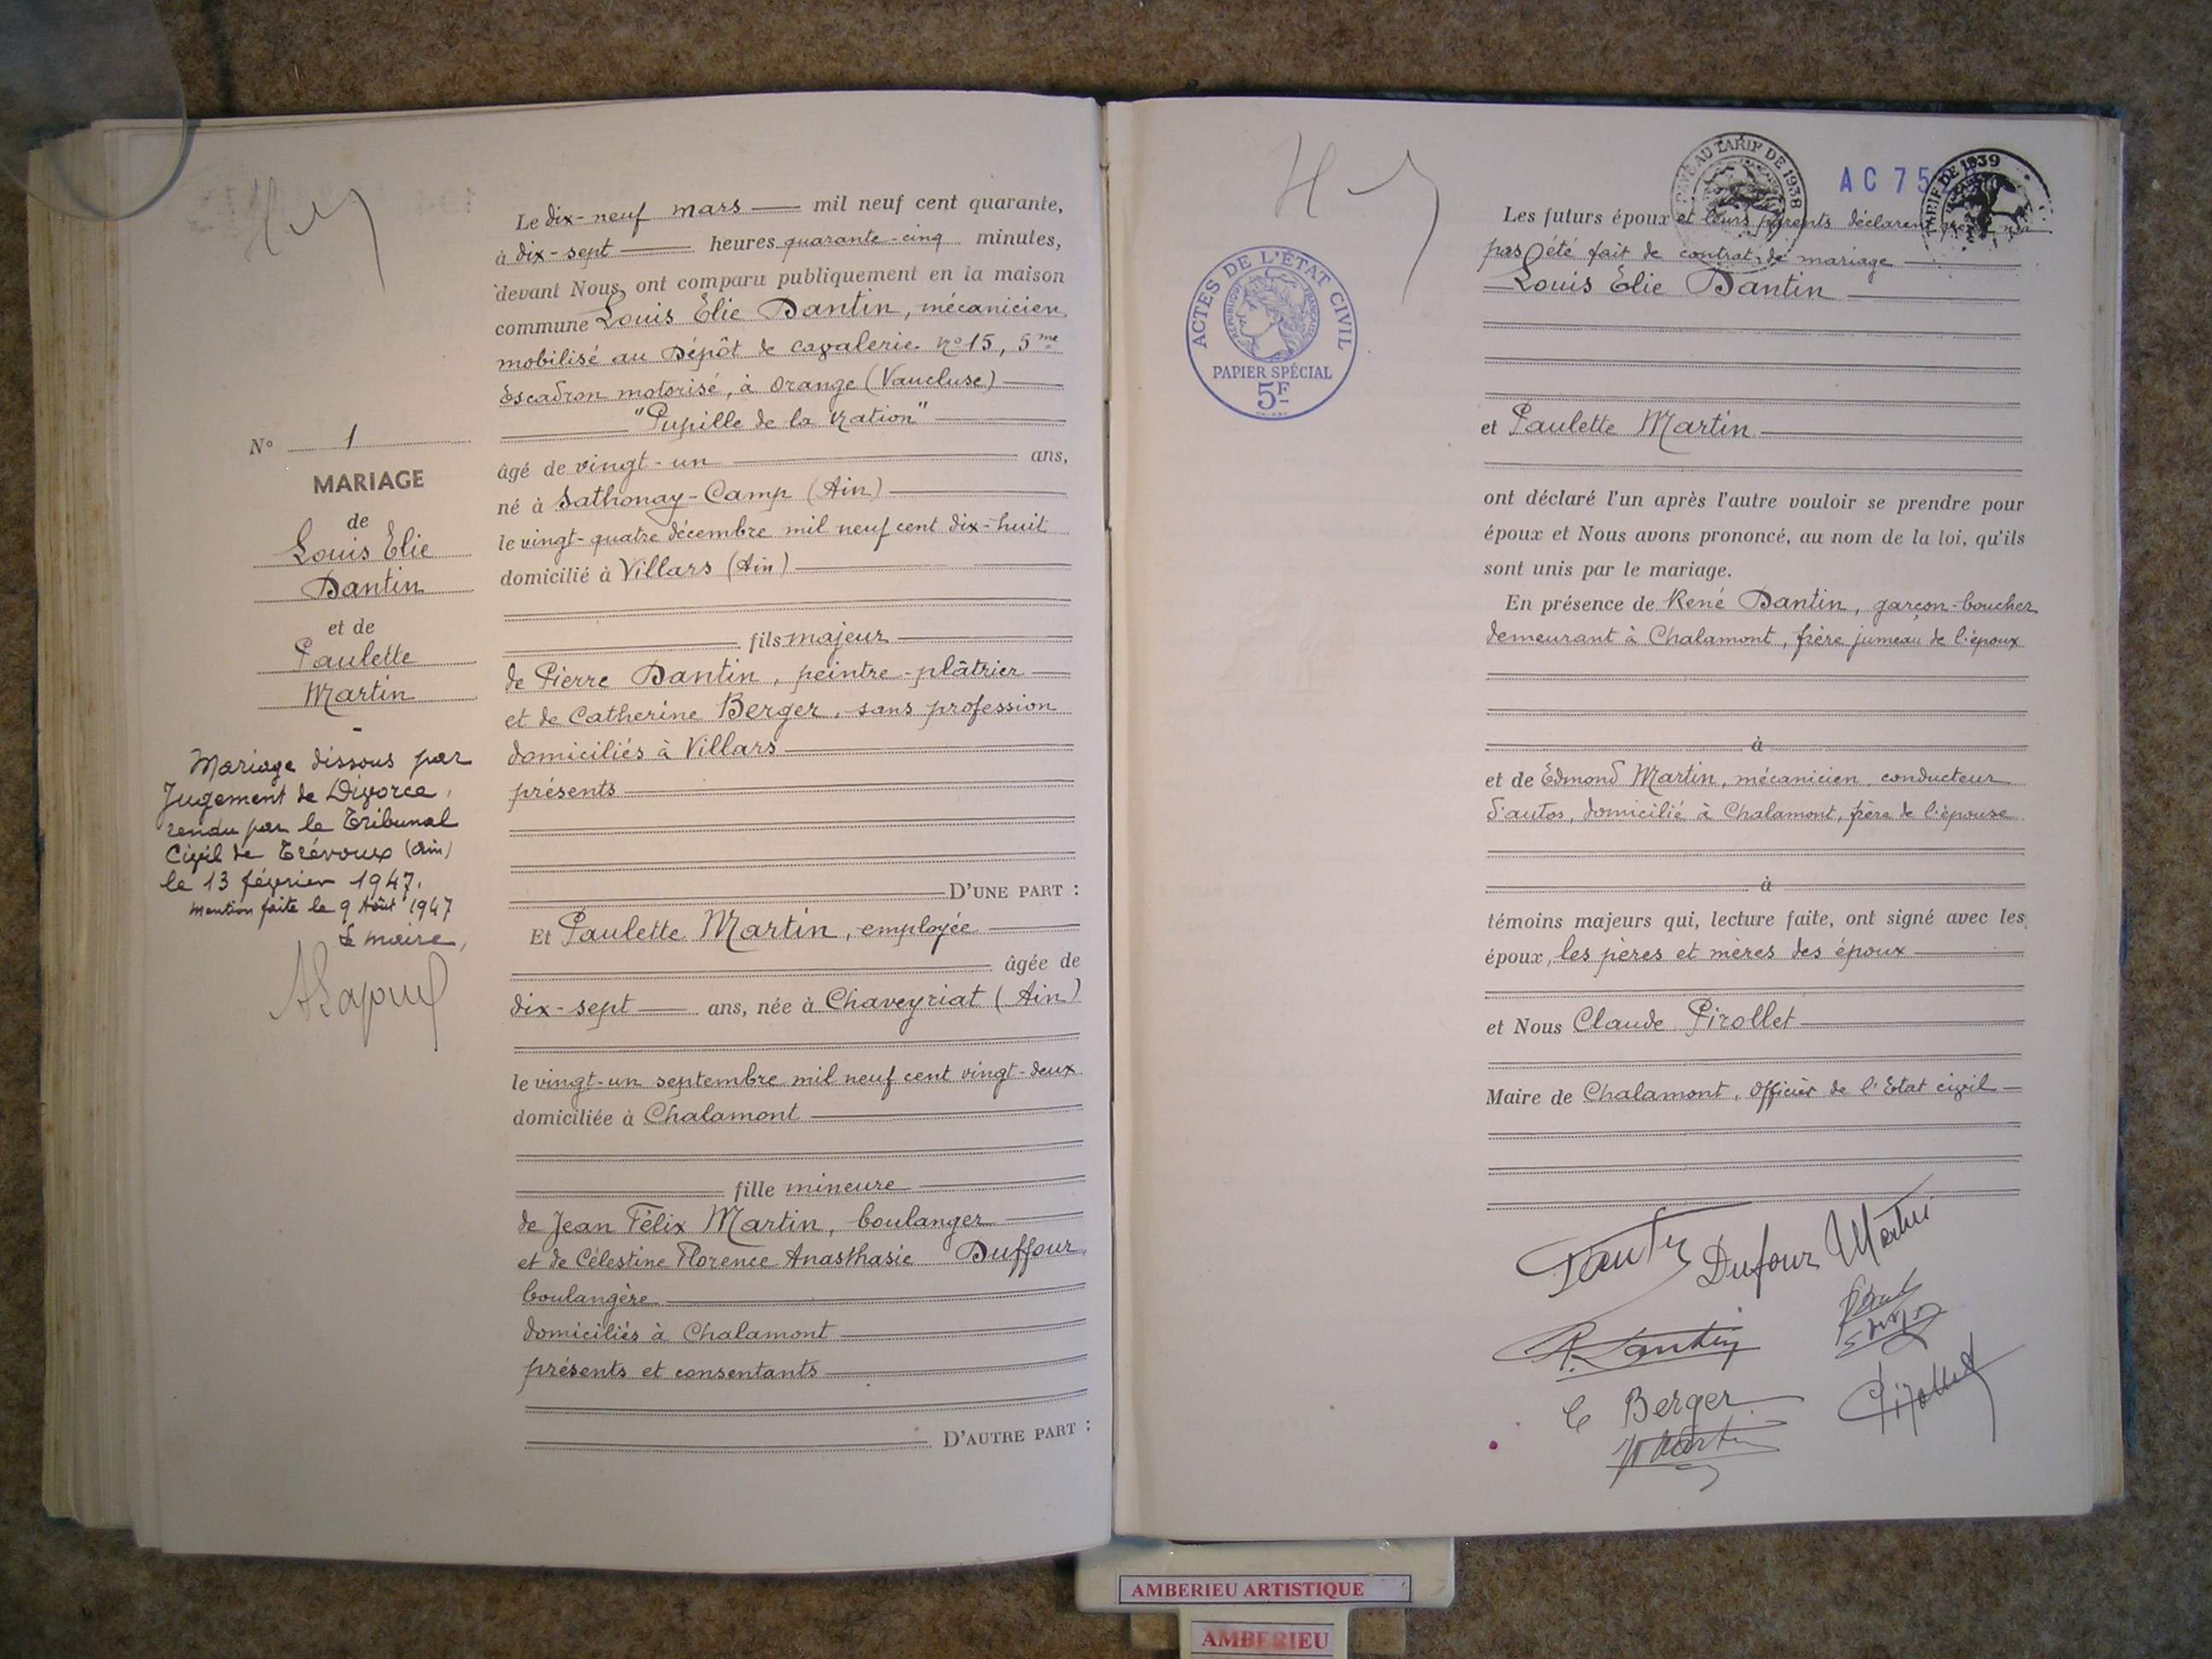 N° 1
MARIAGE
de
Louis Elie
Dantin
et de
Paulette
Martin
Mariage dissous par
Jugement de Divorce,
rendu par le Tribunal
Civil de Trévoux (Ain)
le 13 février 1947.
Mention faite le 9 Août 1947
Le maire,
Le dix-neuf mars mil neuf cent quarante,
à dix-sept heures quarante-cinq minutes,
devant Nous ont comparu publiquement en la maison
commune Louis Elie Dantin, mécanicien,
mobilisé au Dépôt de cavalerie n° 15, 5me
Escadron motorisé, à Orange (Vaucluse)
"Pupille de la Nation"
âgé de vingt-un ans,
né à Sathonay-Camp (Ain)
le vingt-quatre décembre mil neuf cent dix-huit
domicilié à Villars (Ain)
fils majeur
de Pierre Dantin, peintre-plâtrier
et de Catherine Berger, sans profession
domiciliés à Villars
présents
D'UNE PART :
Et Paulette Martin, employée
âgée de
dix-sept ans, née à Chaveyriat (Ain)
le vingt-un septembre mil neuf cent vingt-deux
domiciliée à Chalamont
fille mineure
de Jean Félix Martin, boulanger
et de Célestine Florence Anasthasie Duffour,
boulangère
domiciliés à Chalamont
présents et consentants
D'AUTRE PART :
ACTES DE L'ÉTAT CIVIL
RÉPUBLIQUE FRANÇAISE
PAPIER SPÉCIAL
5F
PAYÉ AU TARIF DE 1938
AC 75
TARIF DE 1939
Les futurs époux et leurs parents déclarent qu'il n'a
pas été fait de contrat de mariage
Louis Elie Dantin
et Paulette Martin
ont déclaré l'un après l'autre vouloir se prendre pour
époux et Nous avons prononcé, au nom de la loi, qu'ils
sont unis par le mariage.
En présence de René Dantin, garçon-boucher
demeurant à Chalamont, frère jumeau de l'époux
à
et de Edmond Martin, mécanicien, conducteur
d'autos, domicilié à Chalamont, frère de l'épouse
à
témoins majeurs qui, lecture faite, ont signé avec les
époux, les pères et mères des époux
et Nous Claude Pirollet
Maire de Chalamont, Officier de l'Etat civil
Dantin Dufour Martin
P. Dantin
C Berger
Martin
Pirollet
AMBERIEU ARTISTIQUE
AMBERIEU